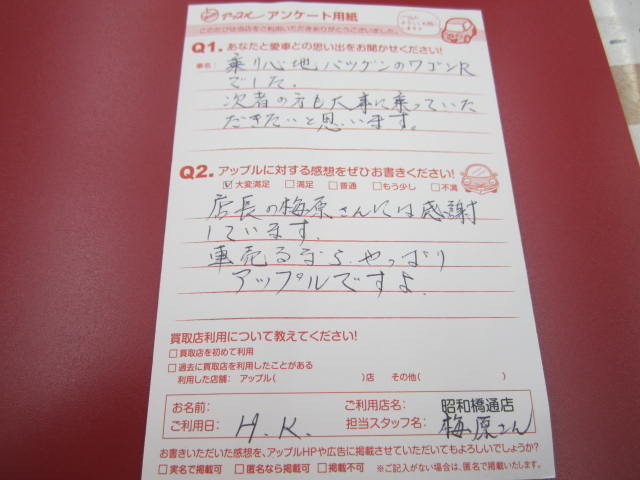 アップル アンケート用紙
このたびは当店をご利用いただきありがとうございました。
Q1. あなたと愛車との思い出をお聞かせください!
車名: 乗り心地バツグンのワゴンR
でした。
次者の方も大事に乗っていた
だきたいと思います。
Q2. アップルに対する感想をぜひお書きください!
☑大変満足 □満足 □普通 □もう少し □不満
店長の梅原さんには感謝
しています。
車売るなら、やっぱり
アップルですよ。
買取店利用について教えてください!
□買取店を初めて利用
□過去に買取店を利用したことがある
利用した店舗: アップル( )店 その他( )
お名前: ご利用店名: 昭和橋通店
ご利用日: H.K. 担当スタッフ名: 梅原さん
お書きいただいた感想を、アップルHPや広告に掲載させていただいてもよろしいでしょうか?
□実名で掲載可 □匿名なら掲載可 □掲載不可 ※ご記入がない場合は、匿名で掲載いたします。